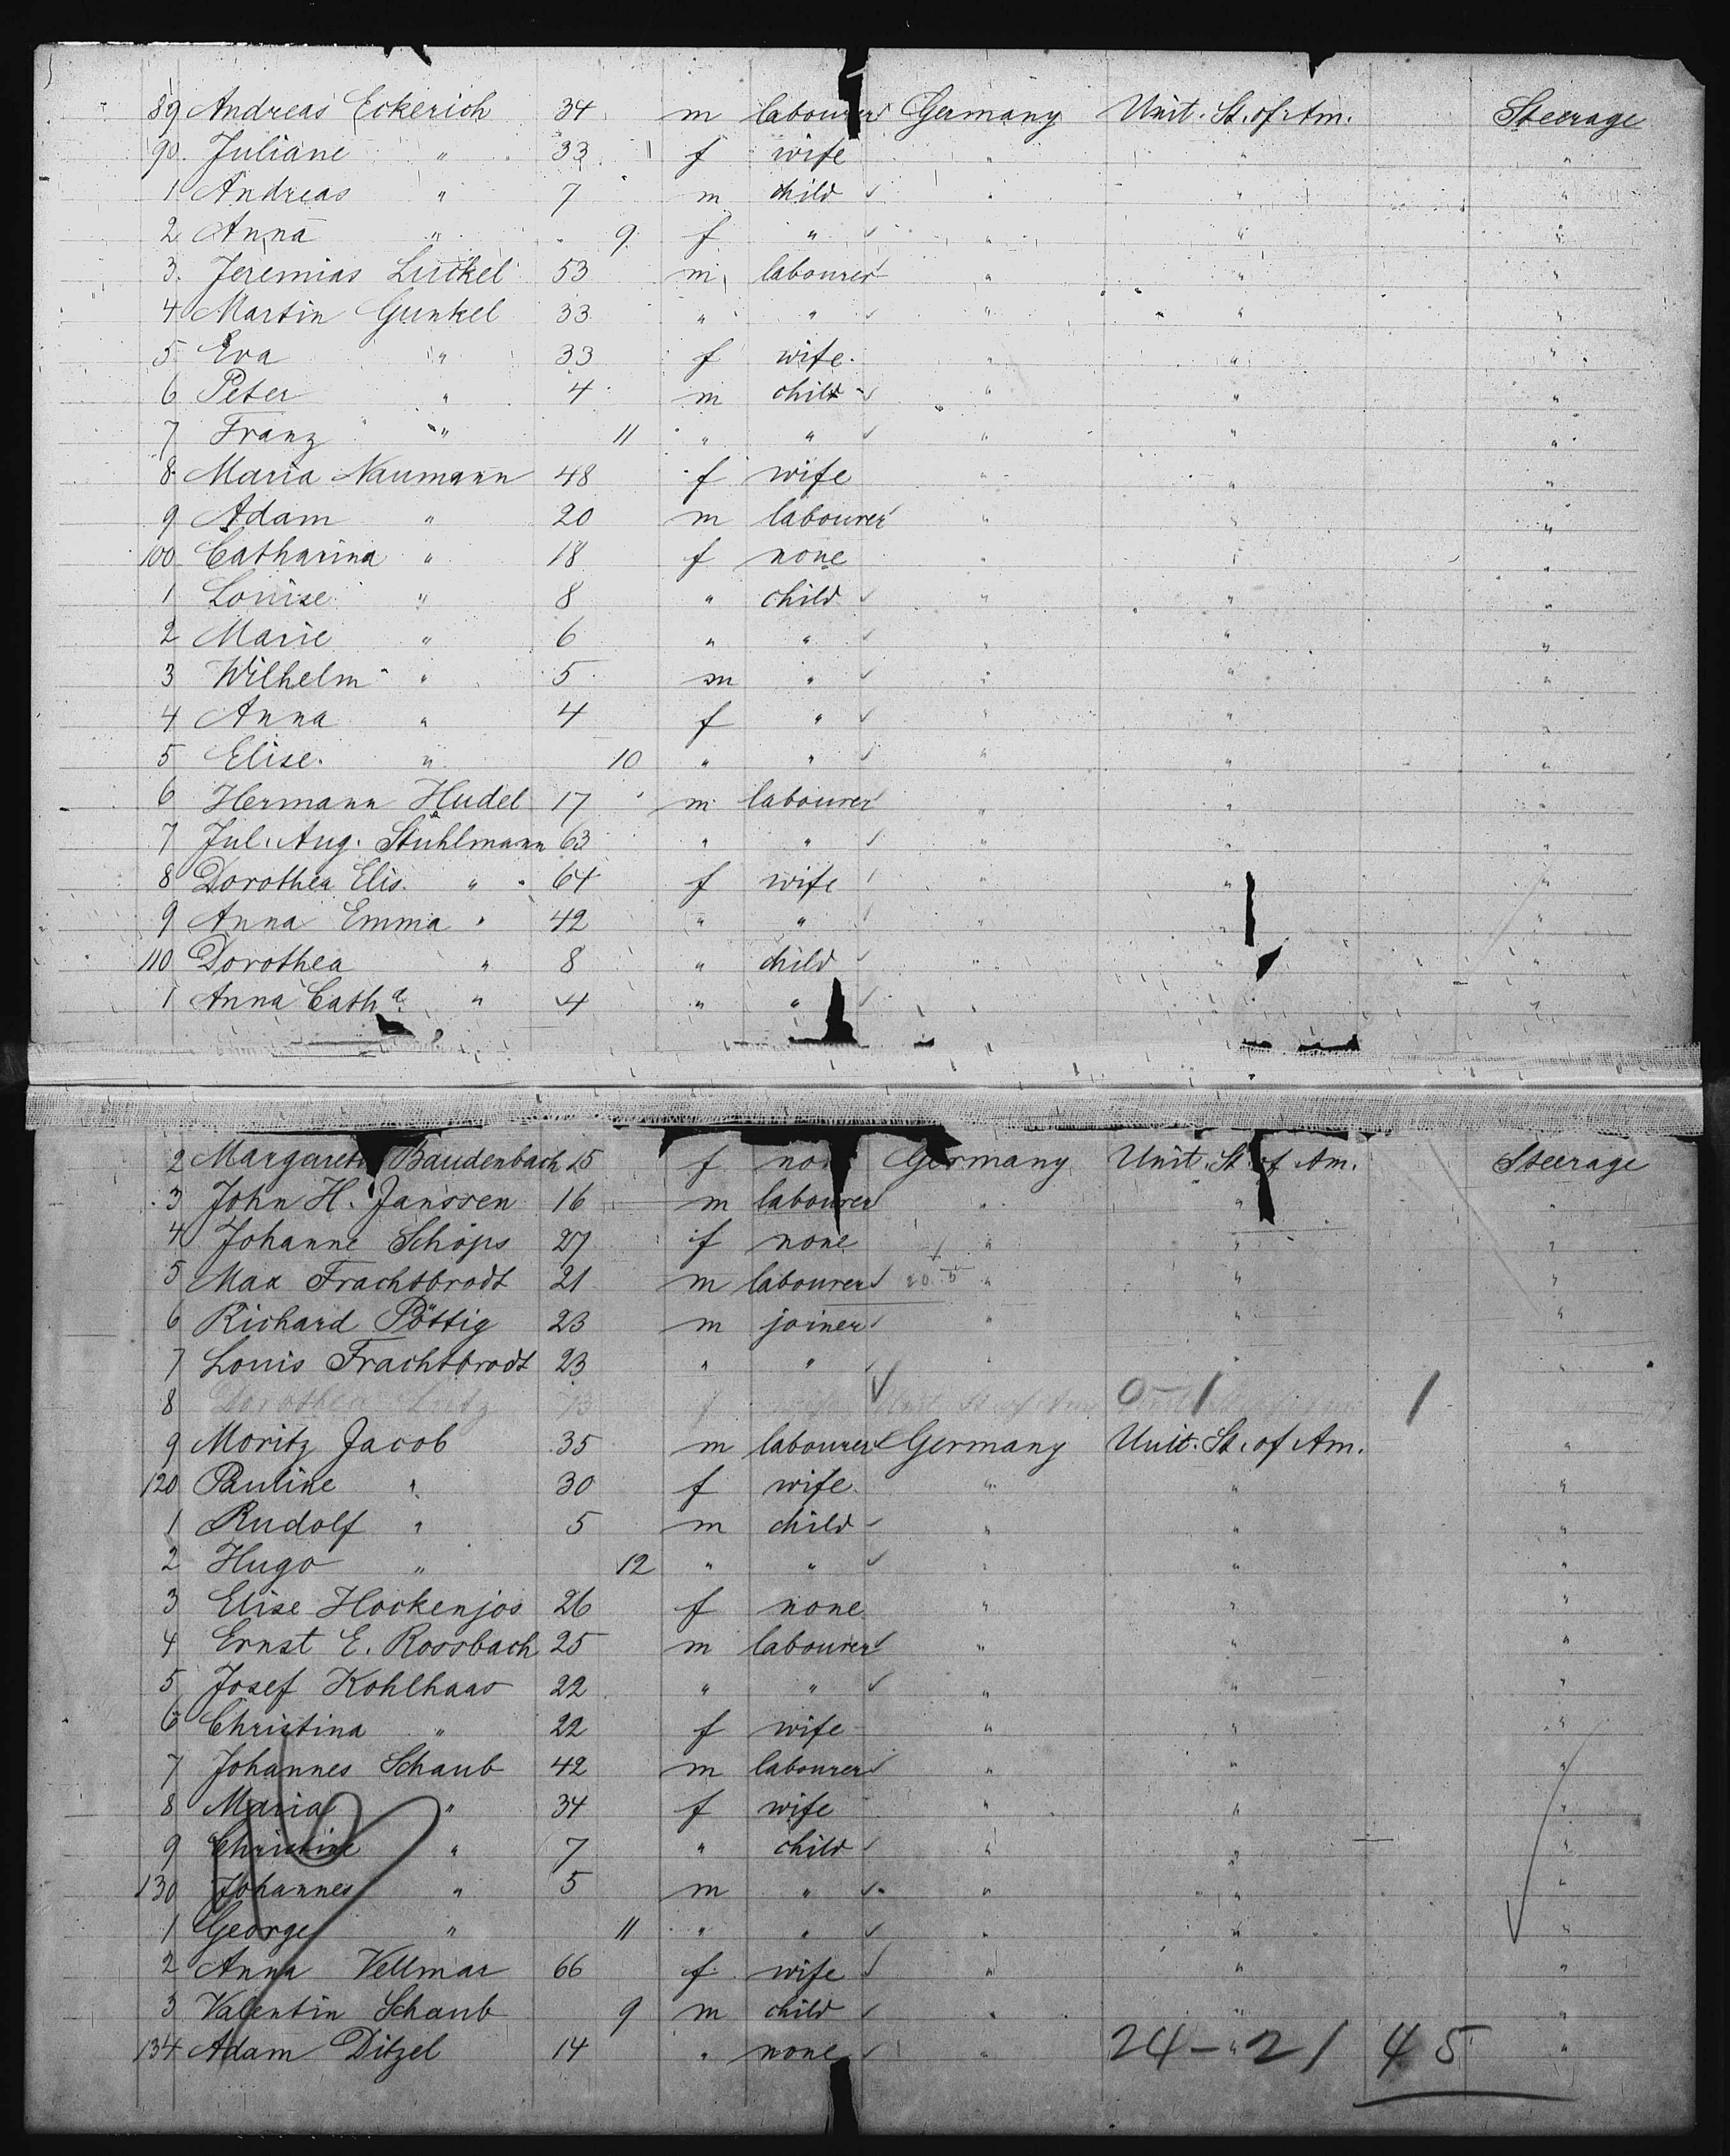 89 Andreas Eckerich 34 m labourer Germany Unit. St. of Am. Steerage
90 Juliane " 33 f wife " " "
1 Andreas " 7 m child " " "
2 Anna " 9 f " " " "
3 Jeremias Luckel 53 m labourer " " "
4 Martin Gunkel 33 " " " " "
5 Eva " 33 f wife " " "
6 Peter " 4 m child " " "
7 Franz " 11 " " " " "
8 Maria Naumann 48 f wife " " "
9 Adam " 20 m labourer " " "
100 Catharina " 18 f none " " "
1 Louise " 8 " child " " "
2 Marie " 6 " " " " "
3 Wilhelm " 5 m " " " "
4 Anna " 4 f " " " "
5 Elise " 10 " " " " "
6 Hermann Hudel 17 m labourer " " "
7 Jul. Aug. Stuhlmann 63 " " " " "
8 Dorothea Elis. " 64 f wife " " "
9 Anna Emma " 42 " " " " "
110 Dorothea " 8 " child " " "
1 Anna Catha " 4 " " " " "
2 Margareth Baudenbach 25 f non Germany Unit. St. of Am. Steerage
3 John H. Janssen 16 m labourer " " "
4 Johanne Schöps 27 f none " " "
5 Max Frachtbrodt 21 m labourer " " "
6 Richard Pöttig 23 m joiner " " "
7 Louis Frachtbrodt 23 " " " " "
8 Dorothea 0-1 1
9 Moritz Jacob 35 m labourer Germany Unit. St. of Am. "
120 Pauline " 30 f wife " " "
1 Rudolf " 5 m child " " "
2 Hugo " 12 " " " " "
3 Elise Hockenjos 26 f none " " "
4 Ernst E. Rossbach 25 m labourer " " "
5 Josef Kohlhaas 22 " " " " "
6 Christina " 22 f wife " " "
7 Johannes Schaub 42 m labourer " " "
8 Maria " 34 f wife " " "
9 Christine " 7 " child " " "
130 Johannes " 5 m " " " "
1 George " 11 " " " " "
2 Anna Vellmar 66 f wife " " "
3 Valentin Schaub 9 m child " " "
134 Adam Ditzel 14 " none " " "
24-21 45